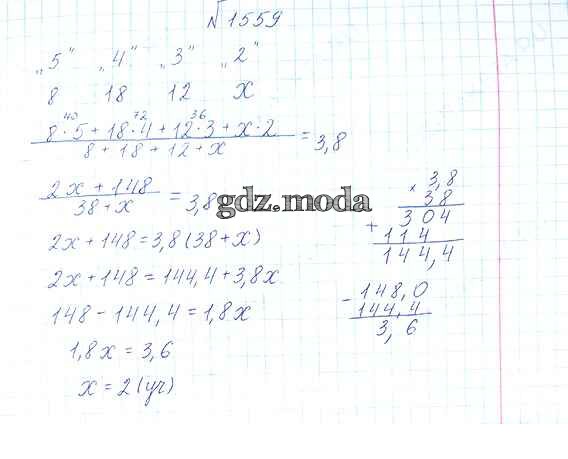 №1559
„5" „4" „3" „2"
8 18 12 x
40 72 36
8·5 + 18·4 + 12·3 + x·2
8 + 18 + 12 + x
= 3,8
2x + 148
38 + x
= 3,8
gdz.moda
2x + 148 = 3,8 (38 + x)
2x + 148 = 144,4 + 3,8x
148 - 144,4 = 1,8x
1,8x = 3,6
x = 2 (уч)
× 3,8
38
304
+
114
144,4
- 148,0
144,4
3,6